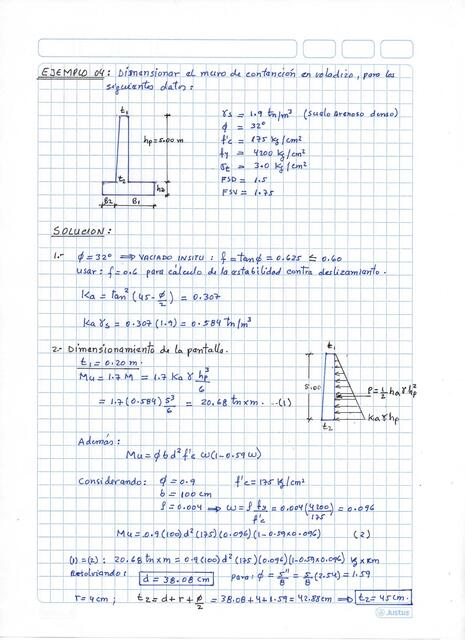 EJEMPLO 04: Dimensionar el muro de contención en voladizo, para los
siguientes datos:
t1
hp=5.00 m
t2
hz
B2 B1
γs = 1.9 tn/m³ (suelo arenoso denso)
ϕ = 32°
f'c = 175 kg/cm²
fy = 4200 kg/cm²
σt = 3.0 kg/cm²
FSD = 1.5
FSV = 1.75
SOLUCION:
1.- ϕ=32° ⟹ VACIADO INSITU: f=tanϕ = 0.625 ≤ 0.60
usar: f=0.6 para cálculo de la estabilidad contra deslizamiento.
Ka = tan²(45-ϕ/2) = 0.307
Ka γs = 0.307(1.9) = 0.584 tn/m³
2.- Dimensionamiento de la pantalla.
t1 = 0.20 m.
Mu = 1.7 M = 1.7 Ka γ hp³/6
= 1.7(0.584) 5³/6 = 20.68 tn×m. ..(1)
t1
5.00
P=½ha γ hp²
Ka γ hp
t2
Además:
Mu = ϕ b d² f'c ω(1-0.59ω)
Considerando: ϕ = 0.9 f'c = 175 kg/cm²
b = 100 cm
ρ = 0.004 ⟹ ω = ρ fy/f'c = 0.004(4200/175) = 0.096
Mu = 0.9(100)d²(175)(0.096)(1-0.59×0.096) (2)
(1)=(2): 20.68 tn×m = 0.9(100)d²(175)(0.096)(1-0.59×0.096) kg×cm
Resolviendo: d = 38.08 cm para: ϕ = 5"/8 = 5/8(2.54) = 1.59
r = 4 cm; t2 = d+r+ϕ/2 = 38.08+4+1.59 = 42.88 cm ⟹ t2=45 cm.
Justus